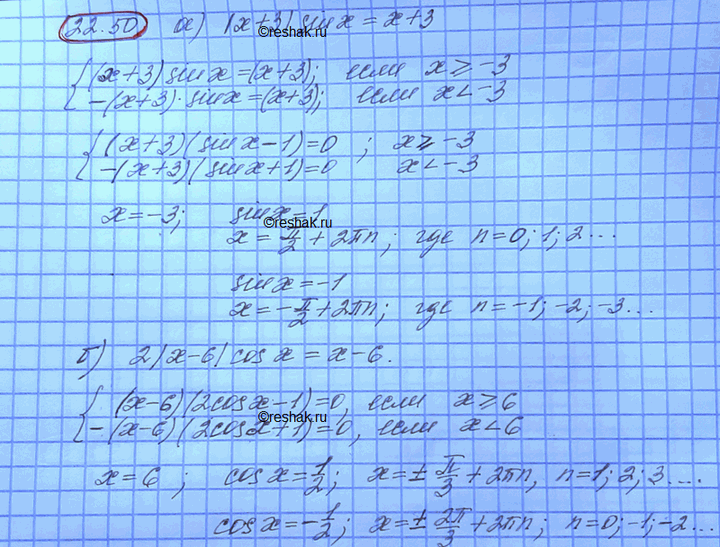 22.50 а) |x+3| sin x = x+3
©reshak.ru
{(x+3) sin x = (x+3); если x ≥ -3
-(x+3)·sin x = (x+3); если x < -3
{(x+3)(sin x - 1) = 0 ; x ≥ -3
-(x+3)(sin x + 1) = 0 x < -3
x = -3; sin x = 1
©reshak.ru
x = π/2 + 2πn; где n = 0; 1; 2...
sin x = -1
x = -π/2 + 2πn; где n = -1; -2; -3...
б) 2|x-6| cos x = x-6.
{(x-6)(2cos x - 1) = 0, если x ≥ 6
©reshak.ru
-(x-6)(2cos x + 1) = 0, если x < 6
x = 6 ; cos x = 1/2; x = ± π/3 + 2πn, n = 1; 2; 3....
cos x = -1/2; x = ± 2π/3 + 2πn; n = 0; -1; -2...